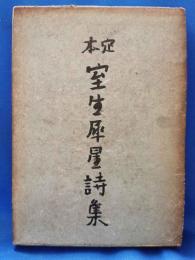 定本
室生犀星詩集